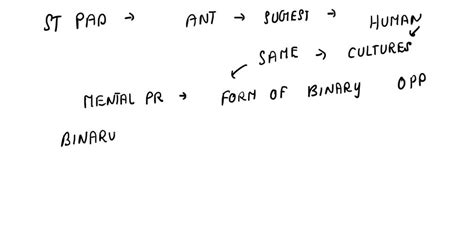 ST PAD → ANT → SUGGEST → HUMAN
SAME → CULTURES
MENTAL PR → FORM OF BINARY OPP
BINARU